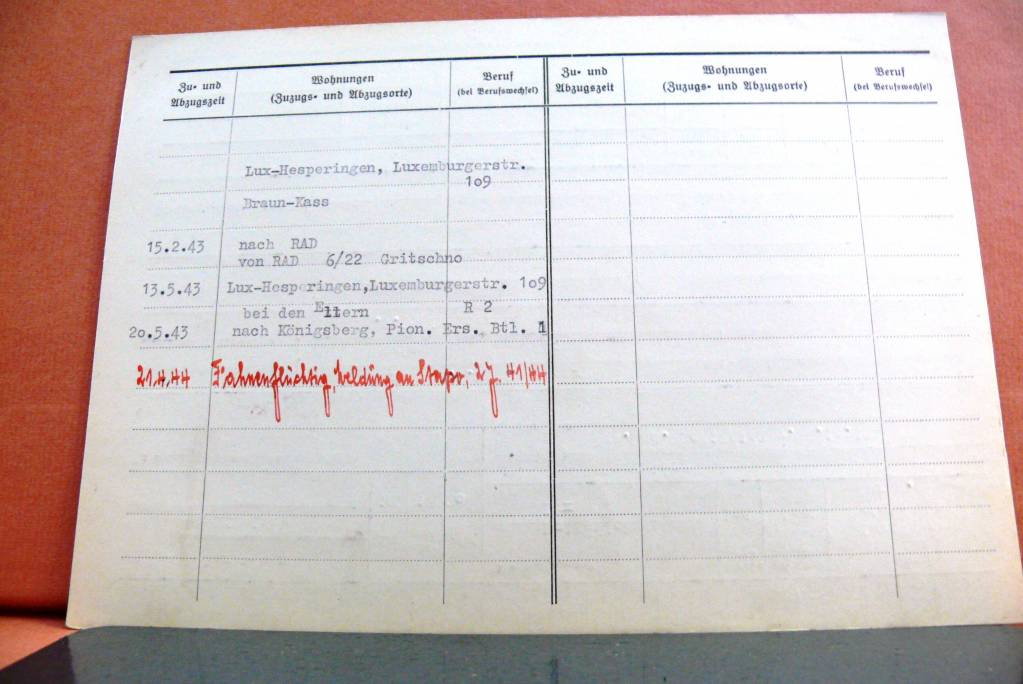 Zu- und Abzugszeit
Wohnungen (Zuzugs- und Abzugsorte)
Beruf (bei Berufswechsel)
Zu- und Abzugszeit
Wohnungen (Zuzugs- und Abzugsorte)
Beruf (bei Berufswechsel)
Lux-Hesperingen, Luxemburgerstr.
1o9
Braun-Kass
15.2.43 nach RAD
von RAD 6/22 Gritschno
13.5.43 Lux-Hesperingen,Luxemburgerstr. 1o9
bei den Eltern R 2
2o.5.43 nach Königsberg, Pion. Ers. Btl. 1
21.4.44 Fahnenflüchtig, Meldung an Stapo, 2 J. 41/44